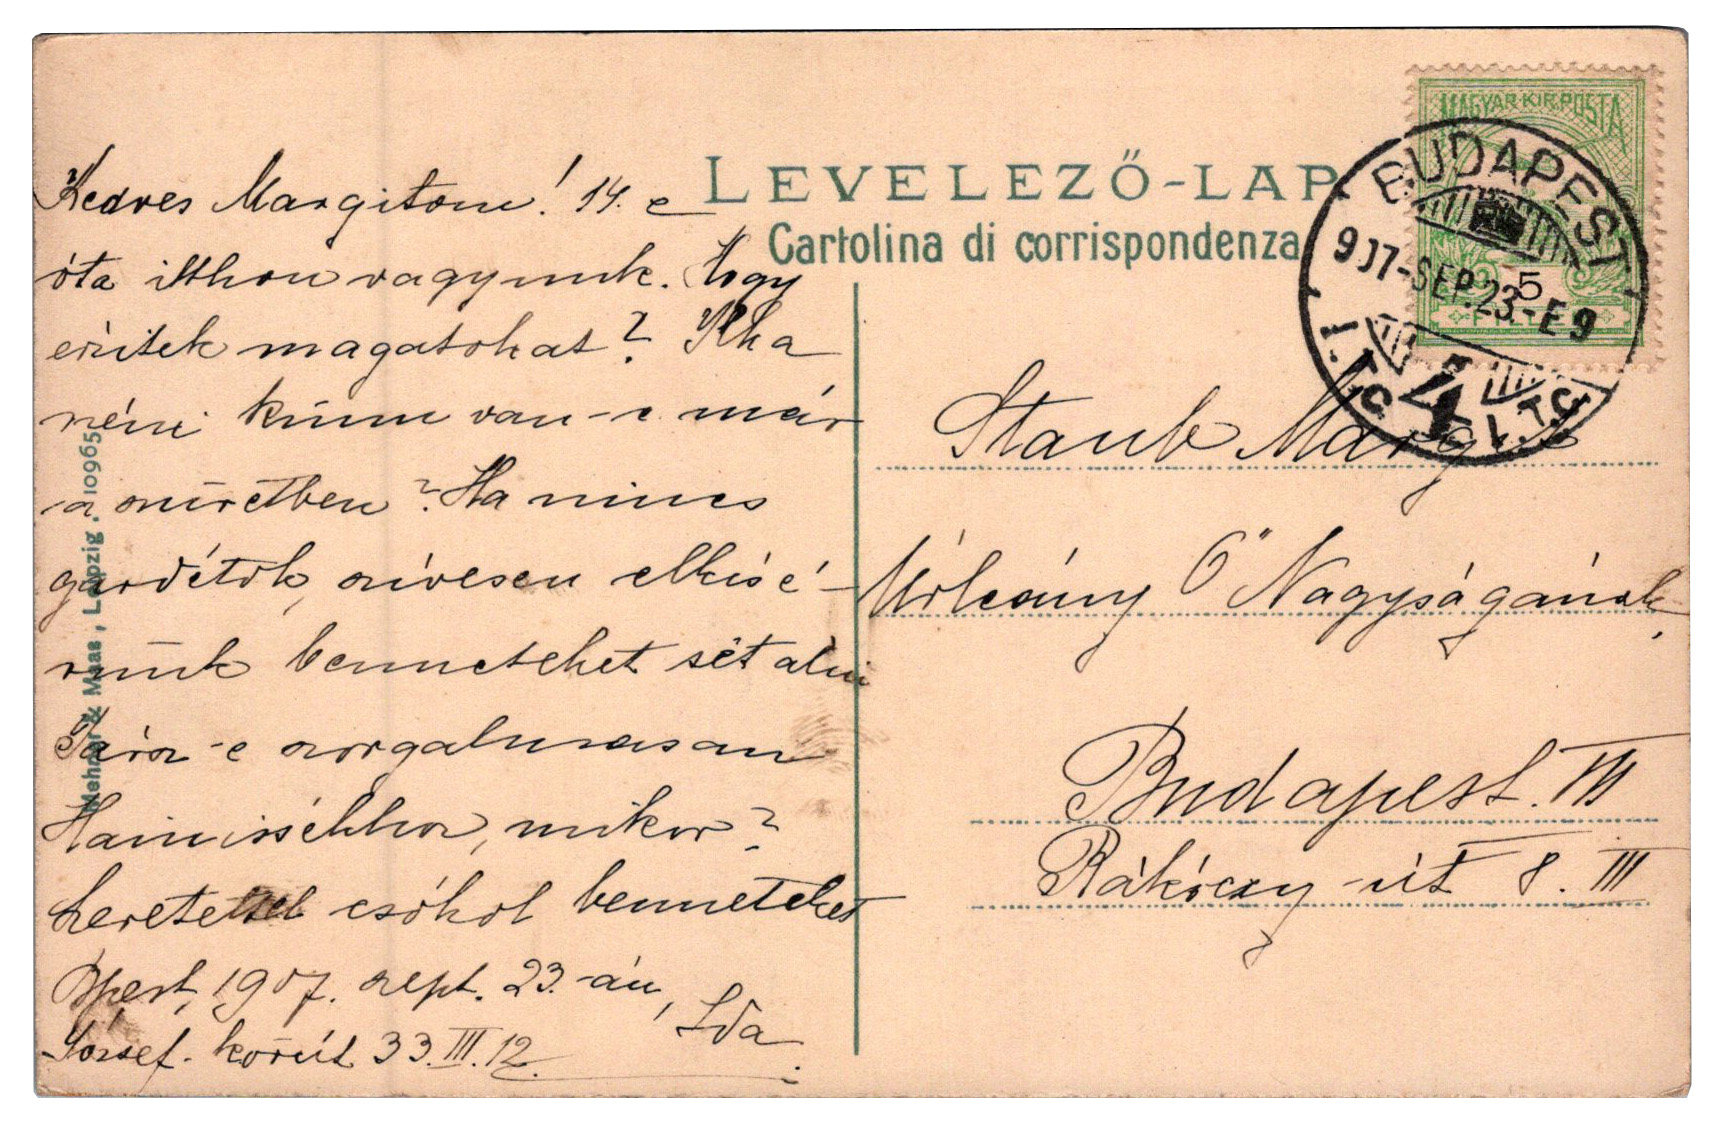 LEVELEZŐ-LAP
Cartolina di corrispondenza
MAGYAR KIR. POSTA
5
BUDAPEST
907-SEP.23.-E9
4
Kedves Margitom! 14. e
óta itthon vagyunk. Hogy
érzitek magatokat? Ilka
néni künn van-e már
a szüretben? Ha nincs
gardétok, szívesen elkísé-
rünk benneteket sétálni
Jársz-e szorgalmasan
mikor?
Szeretettel csókol benneteket
Bpest, 1907. szept. 23.-án,
Ida
József-körút 33. III. 12.
Staub Margit
Úrleány Ő Nagyságának,
Budapest. VIII
Rákóczy-út 8. III
Mehner & Maas, Leipzig. 10965